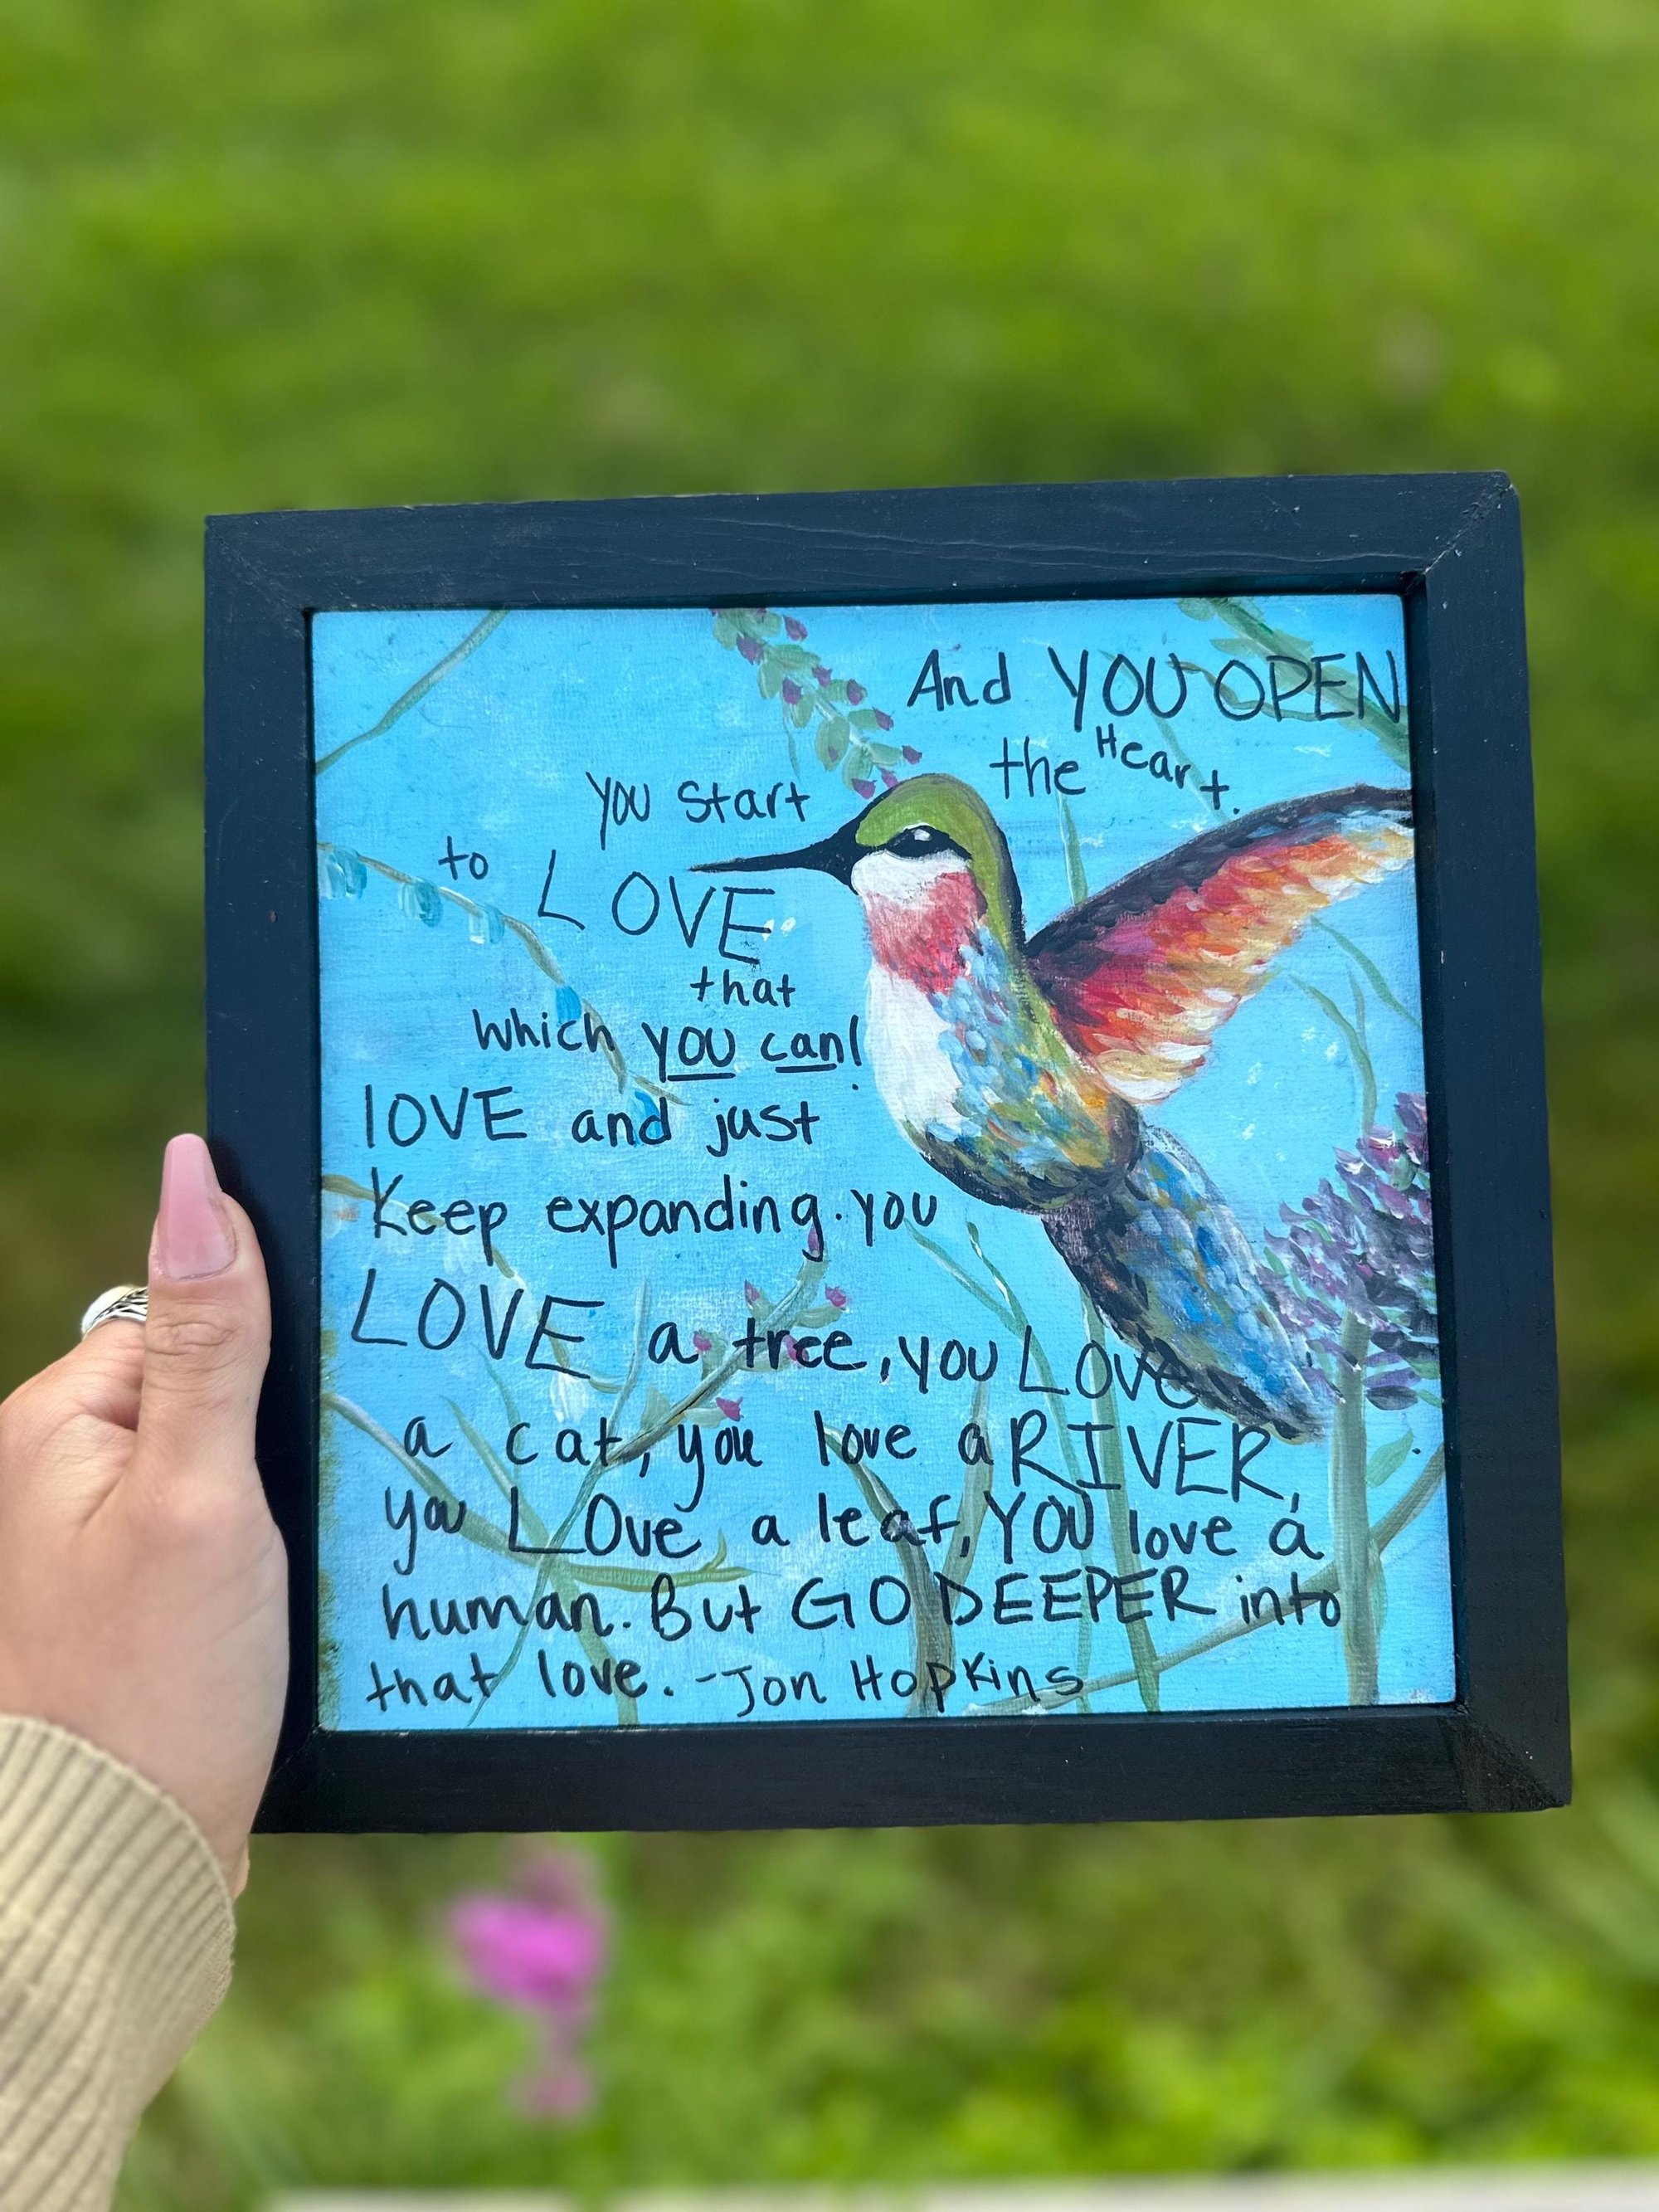 And YOU OPEN
the Heart.
you start
to LOVE
that
which you can!
lOVE and just
Keep expanding. you
LOVE a tree, you LOVe
a cat, you love a RIVER,
you LOve a leaf, YOU love a
human. But GO DEEPER into
that love. -Jon Hopkins